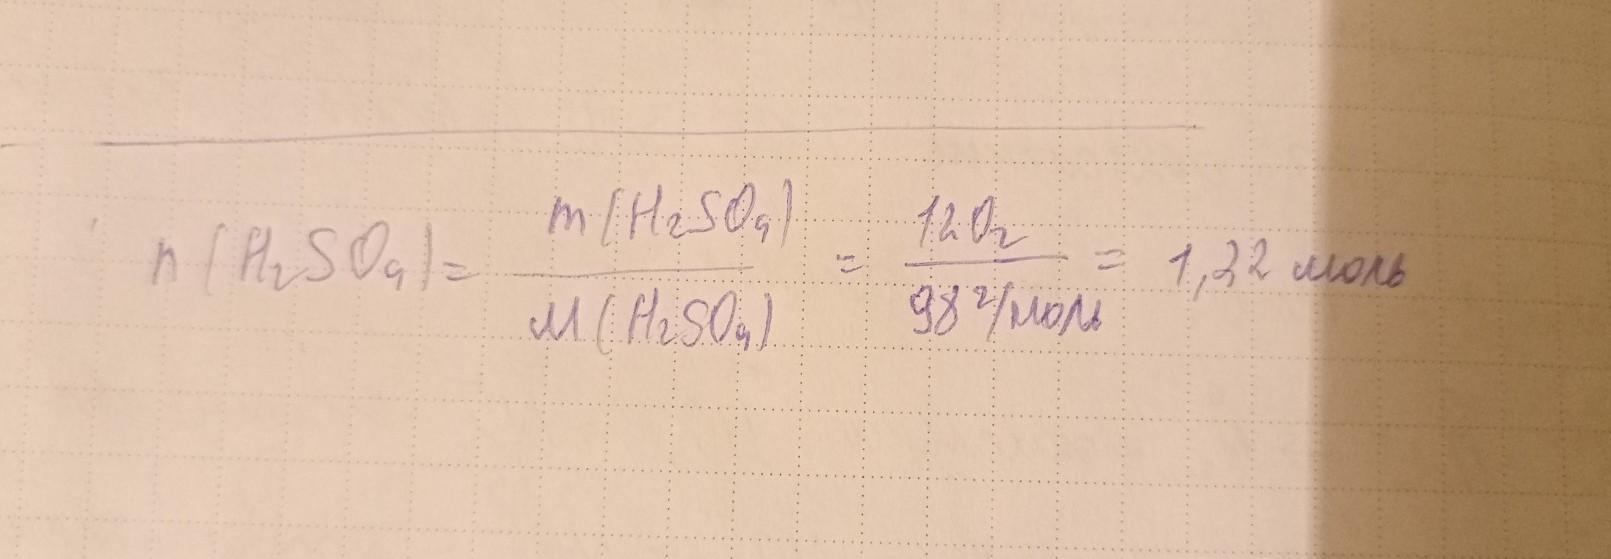 n(H₂SO₄) = m(H₂SO₄) / M(H₂SO₄) = 120г / 98г/моль = 1,22 моль